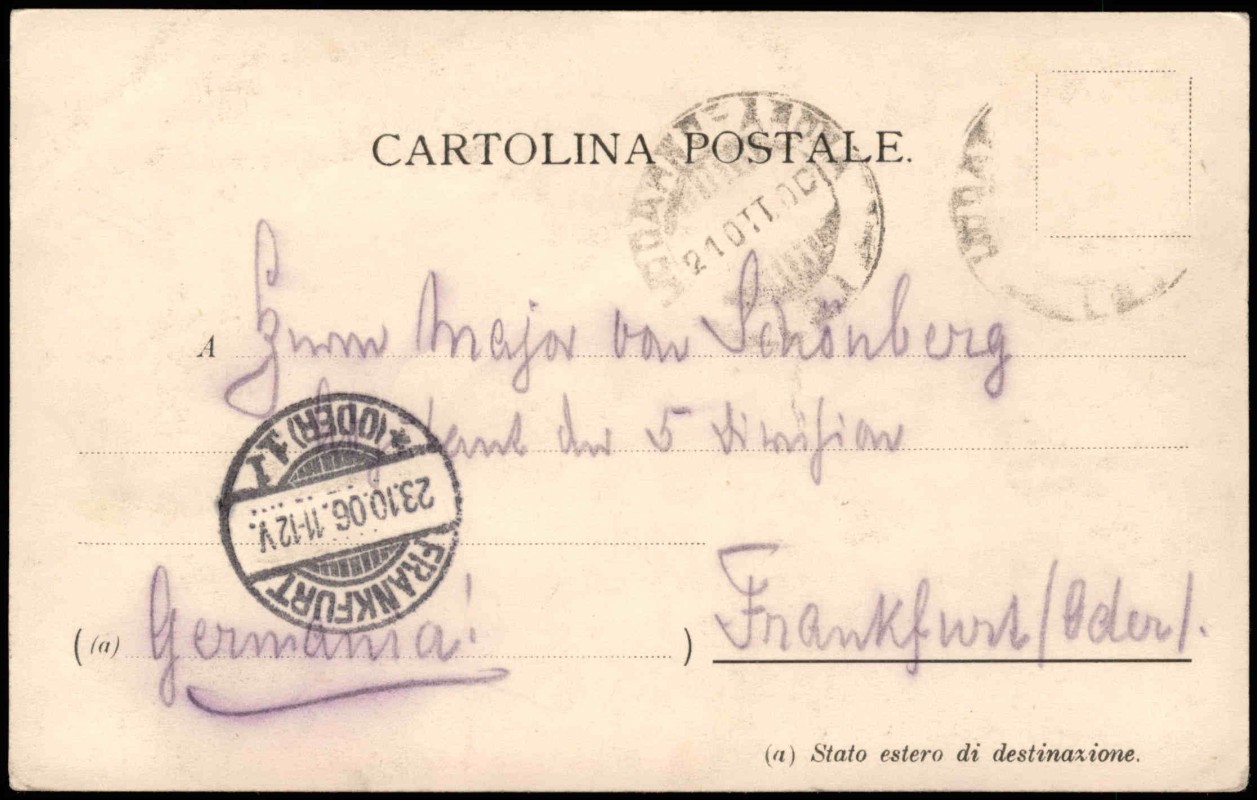 CARTOLINA POSTALE.
21 OTT 06
A Herrn Major von Schönberg
der 5 Division
FRANKFURT
* (ODER) 1.1
23.10.06.11-12V.
((a) Germania! ) Frankfurt/Oder/.
(a) Stato estero di destinazione.